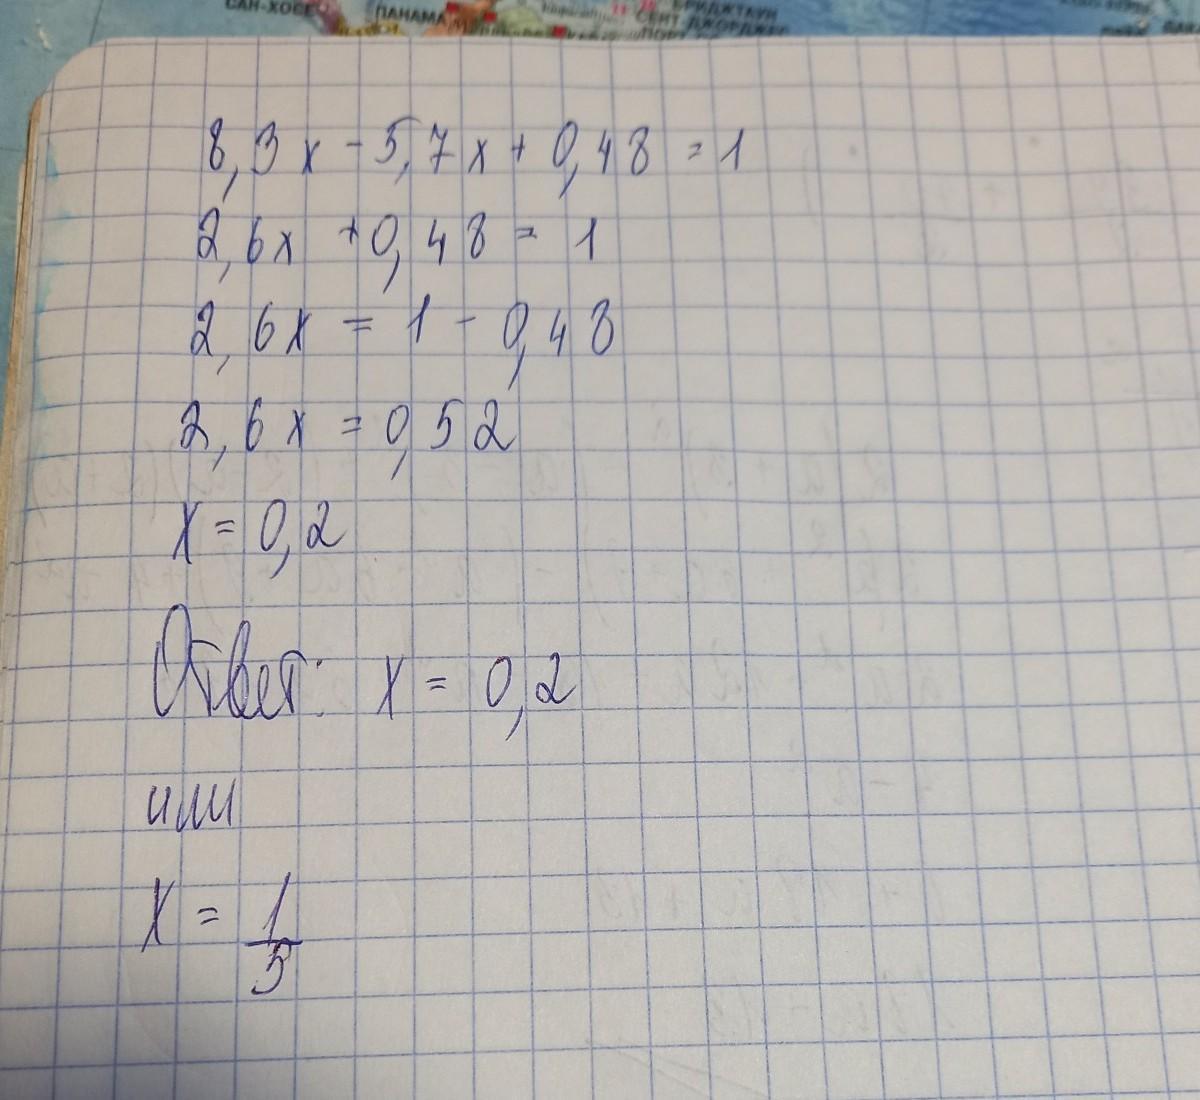 САН-ХОСЕ
ПАНАМА
БРИДЖТАУН
СЕНТ ДЖОРДЖЕС
8,3x - 5,7x + 0,48 = 1
2,6x + 0,48 = 1
2,6x = 1 - 0,48
2,6x = 0,52
x = 0,2
Ответ: x = 0,2
или
x = 1/5